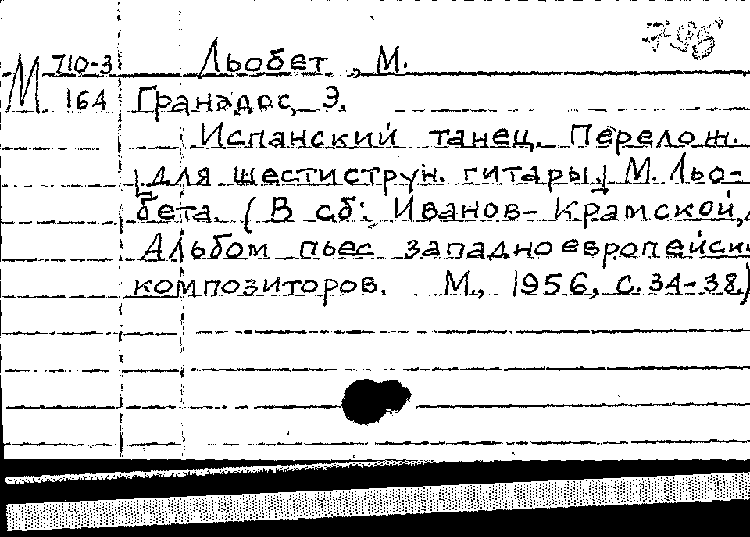 795
М 710-3 Льобет, М.
164 Гранадос, Э.
Испанский танец. Перелож.
[для шестиструн. гитары.] М. Льо-
бета. (В сб: Иванов-Крамской, А.
Альбом пьес западноевропейски
композиторов. М., 1956, с. 34-38.)